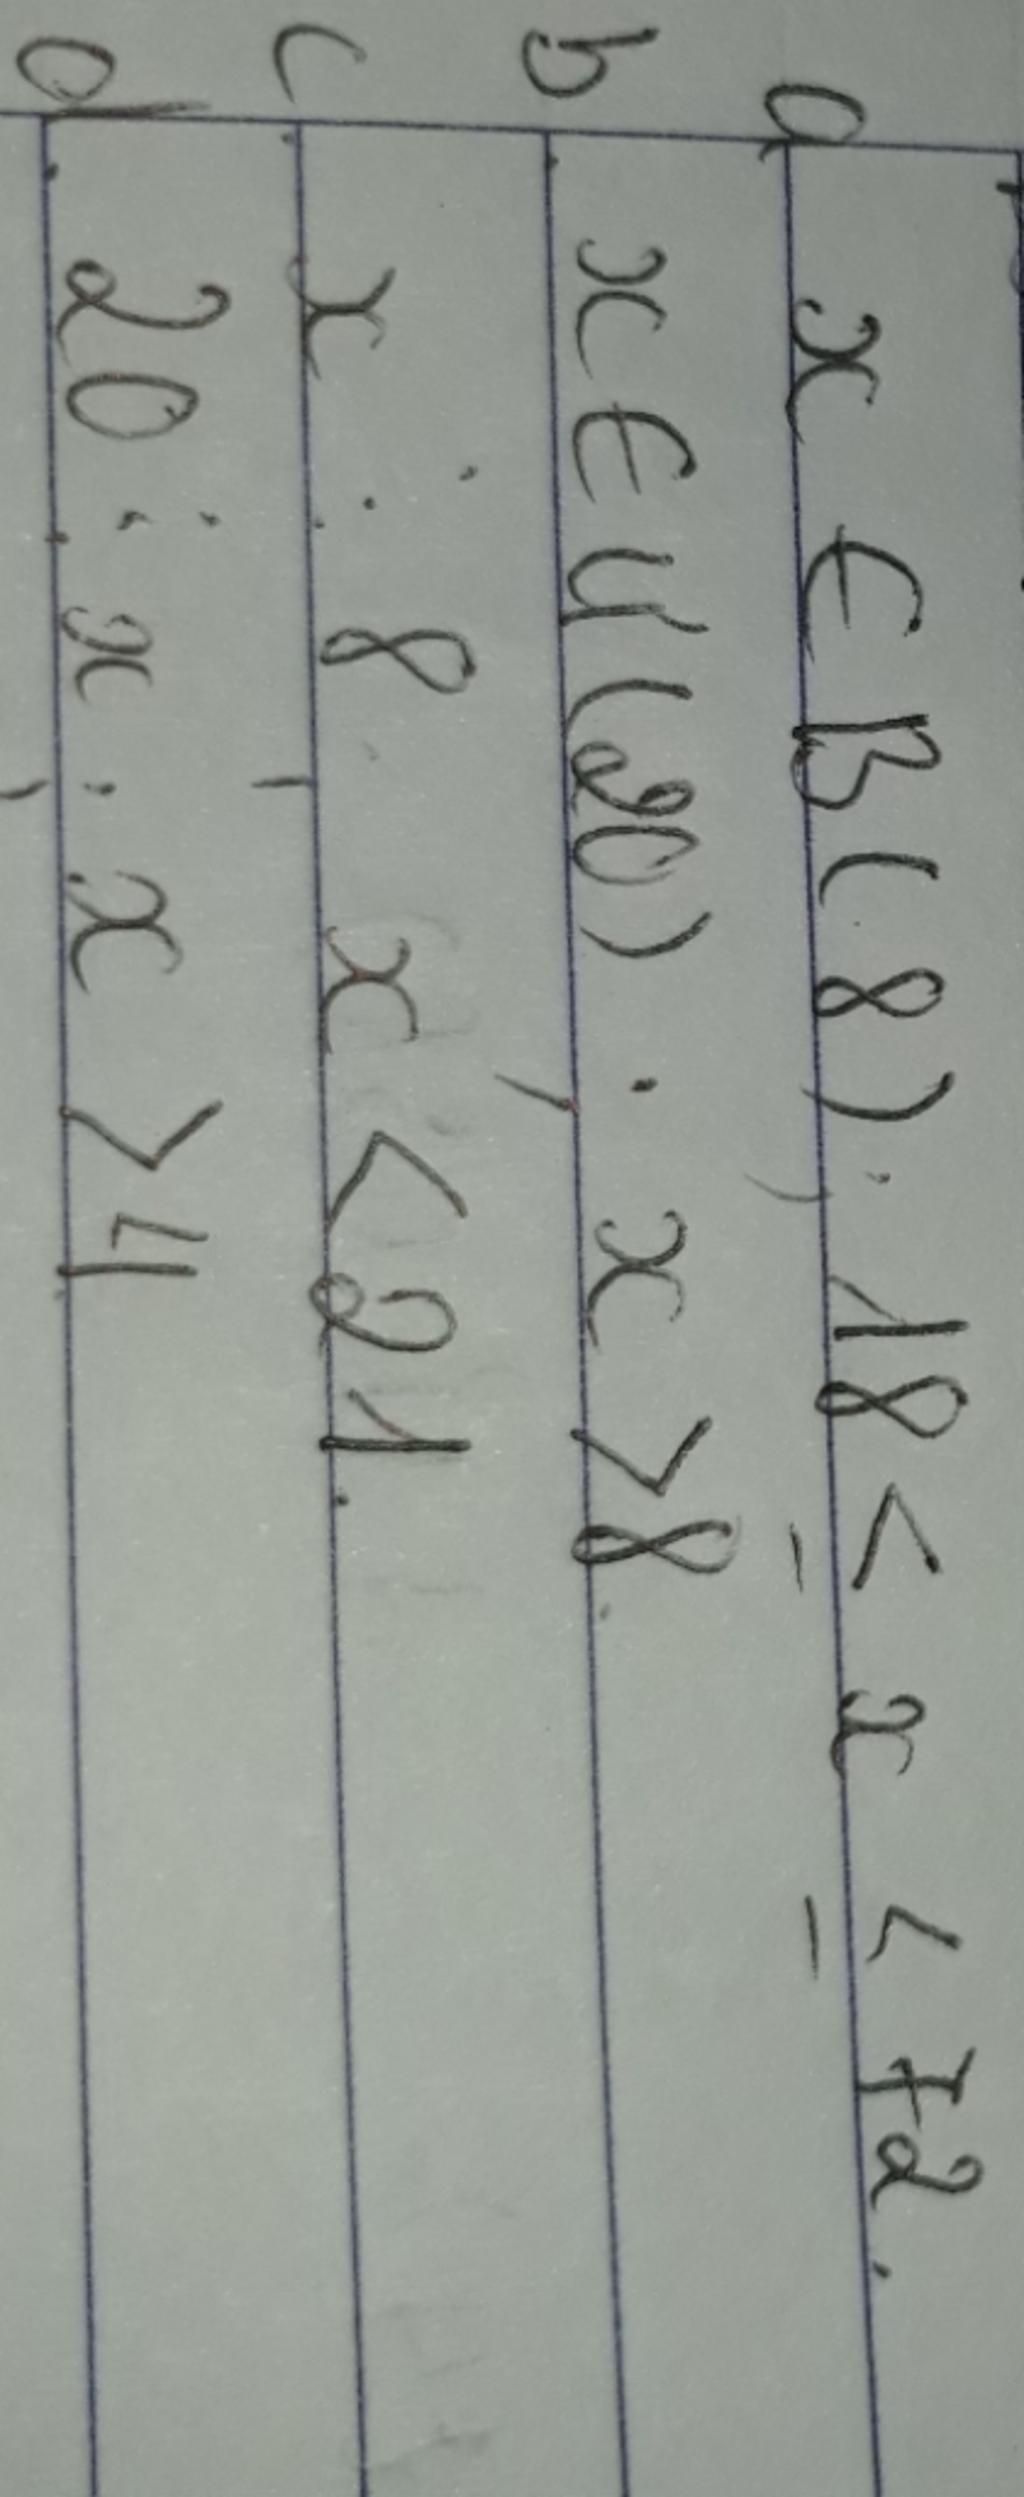 a. x ∈ B(8); 18 ≤ x ≤ 72.
b. x ∈ Ư(20); x > 8.
c. x ⋮ 8; x < 21.
d. 20 ⋮ x; x > 4